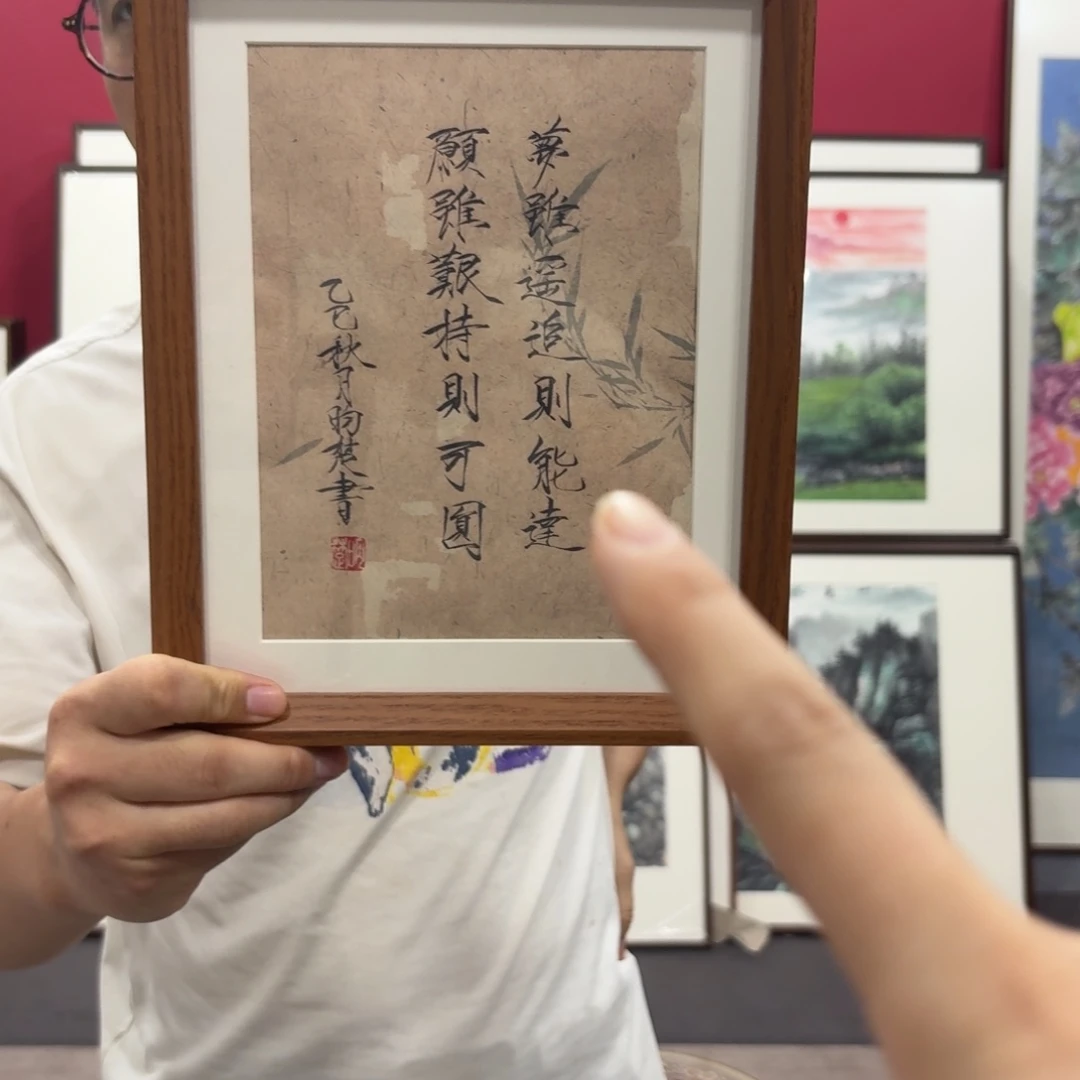 夢雖遥追則能達
願雖艱持則可圓
乙巳秋月昀楚書